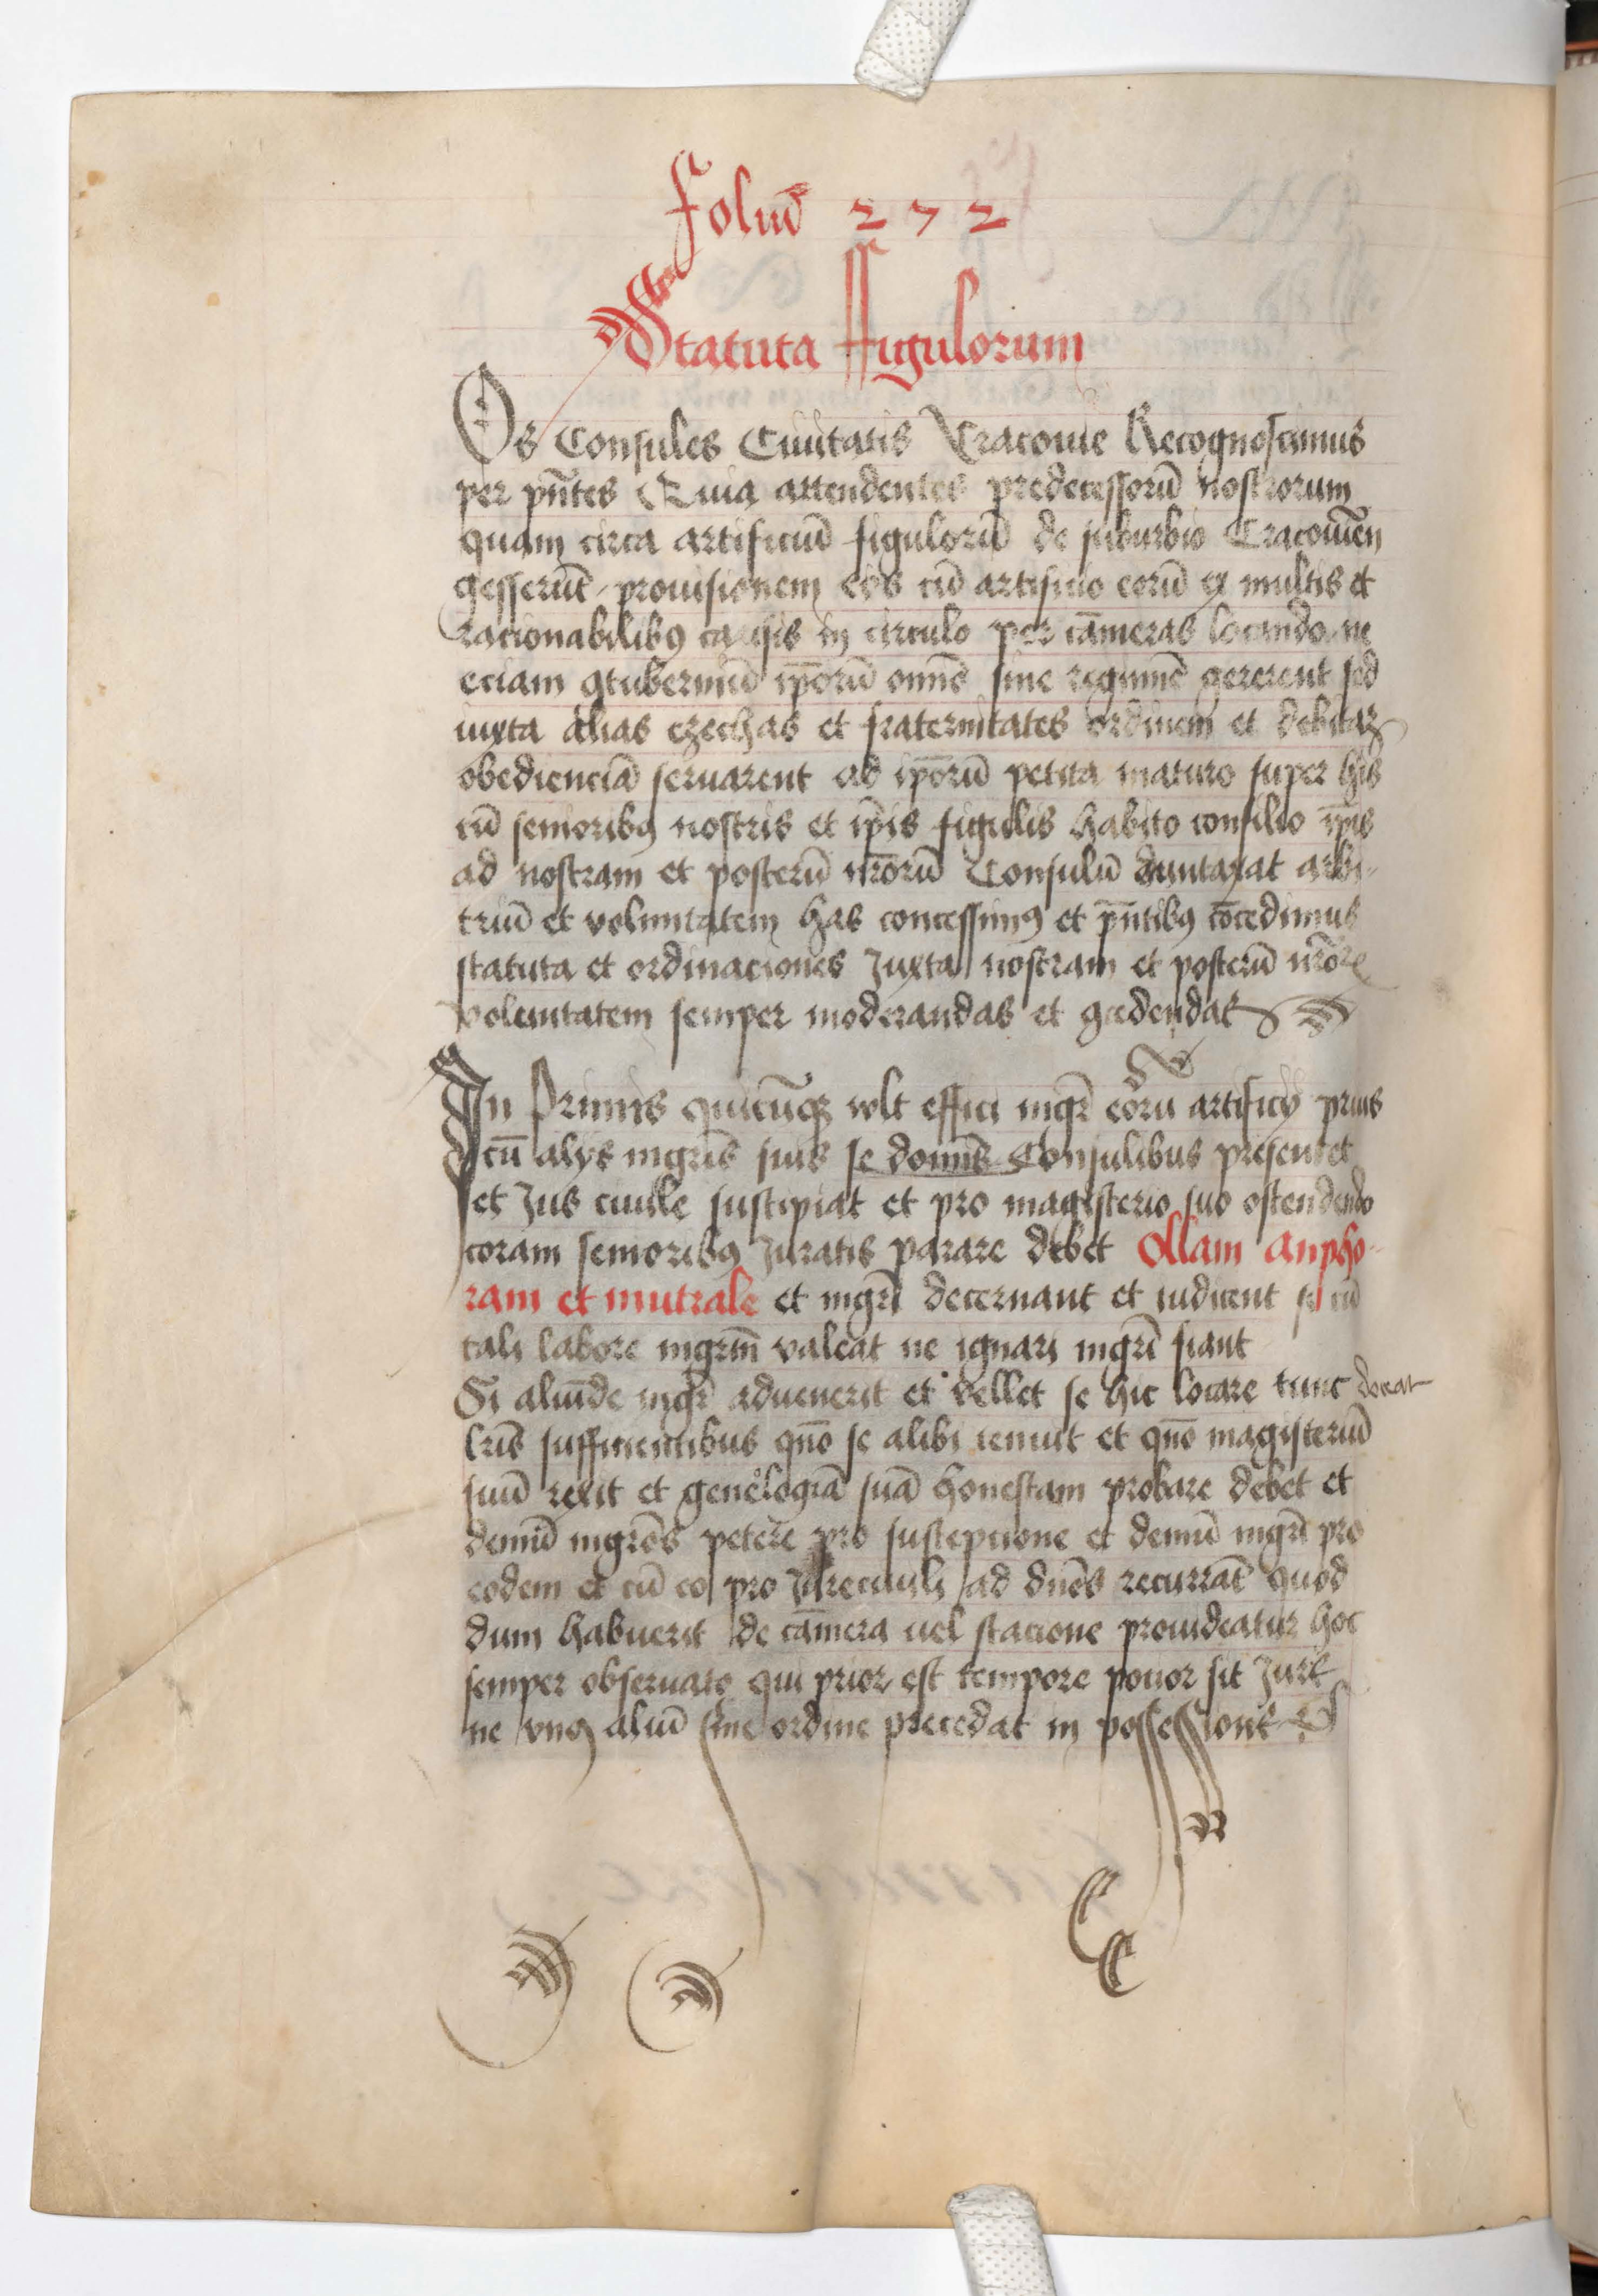 Foliũ 272
Statuta ffigulorum
Os Consules Ciuitatis Cracouie Recognoscimus
per pñtes Quia attendentes predecessorũ nostrorum
quam circa artificiũ figulorũ de suburbio Cracouieñ
gesserũt prouisionem eos cũ artificio eorũ ex multis et
racionabilibꝯ causis in circulo per cãmeras locando ne
eciam ꝯtuberniũ ip̃orũ om̃e sine regimĩe gererent sed
iuxta alias czechas et fraternitates ordinem et debitaꝫ
obedienciã seruarent ad ip̃orũ petita maturo super his
cũ senioribꝯ nostris et ip̃is figulis habito consilio ip̃is
ad nostram et posterũ nr̃orũ Consulũ duntaxat arbi-
triũ et voluntatem has concessimꝯ et pñtibꝯ cõcedimus
statuta et ordinaciones Juxta nostram et posterũ nr̃orꝝ
voluntatem semper moderandas et ꝯcedendas
In Primis quicũqꝫ wlt effici mgr̃ eorũ artificij prius
cũ alijs mgris̃ suis se domĩs Consulibus presentet
et Jus ciuile suscipiat et pro magisterio suo ostendendo
coram senioribꝯ Juratis parare debet Ollam anpho-
ram et mutrale et mgrĩ decernant et iudicent si cũ
tali labore mgrm̃ valeat ne ignari mgrĩ fiant
Si aliũde mgr̃ aduenerit et vellet se hic locare tunc doceat
lr̃is sufficientibus quõ se alibi tenuit et quõ magisteriũ
suũ rexit et genelogiã suã honestam probare debet et
demũ mgros̃ petere pro suscepcione et demũ mgrĩ pro
eodem et cũ eo pro Jureciuili ad dños recurrãt quod
dum habuerit de cãmera uel stacione prouideatur hoc
semper obseruato qui prior est tempore pocior sit Jure
ne vnꝯ aliũ sine ordine precedat in possessione